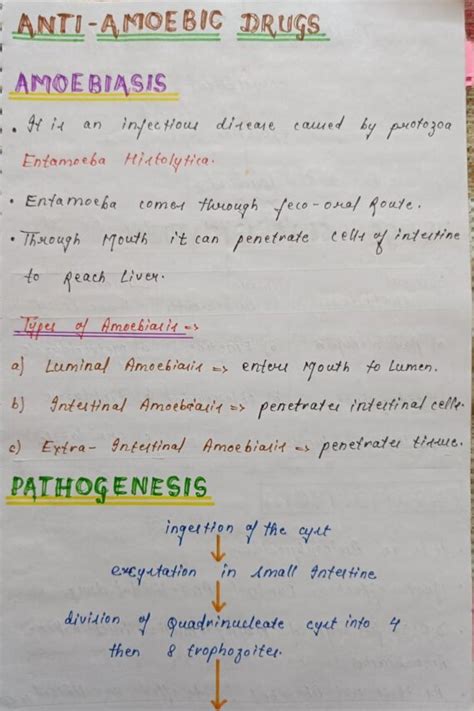 ANTI-AMOEBIC DRUGS
AMOEBIASIS
• It is an infectious disease caused by protozoa
Entamoeba Histolytica.
• Entamoeba comes through feco-oral Route.
• Through Mouth it can penetrate cells of intestine
to Reach Liver.
Types of Amoebiasis =>
a) Luminal Amoebiasis => enters Mouth to Lumen.
b) Intestinal Amoebiasis => penetrates intestinal cells.
c) Extra-Intestinal Amoebiasis => penetrates tissue.
PATHOGENESIS
ingestion of the cyst
excystation in small Intestine
division of Quadrinucleate cyst into 4
then 8 trophozoites.